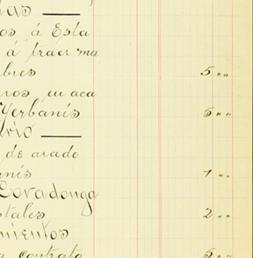 os á Esta
á traer ma
bres 5 " "
ros en aca
Yerbanis 5 " "
rio
de arado
anis 1 " "
Covadonga
stales 2 " "
mientos
a contrato 5 " "